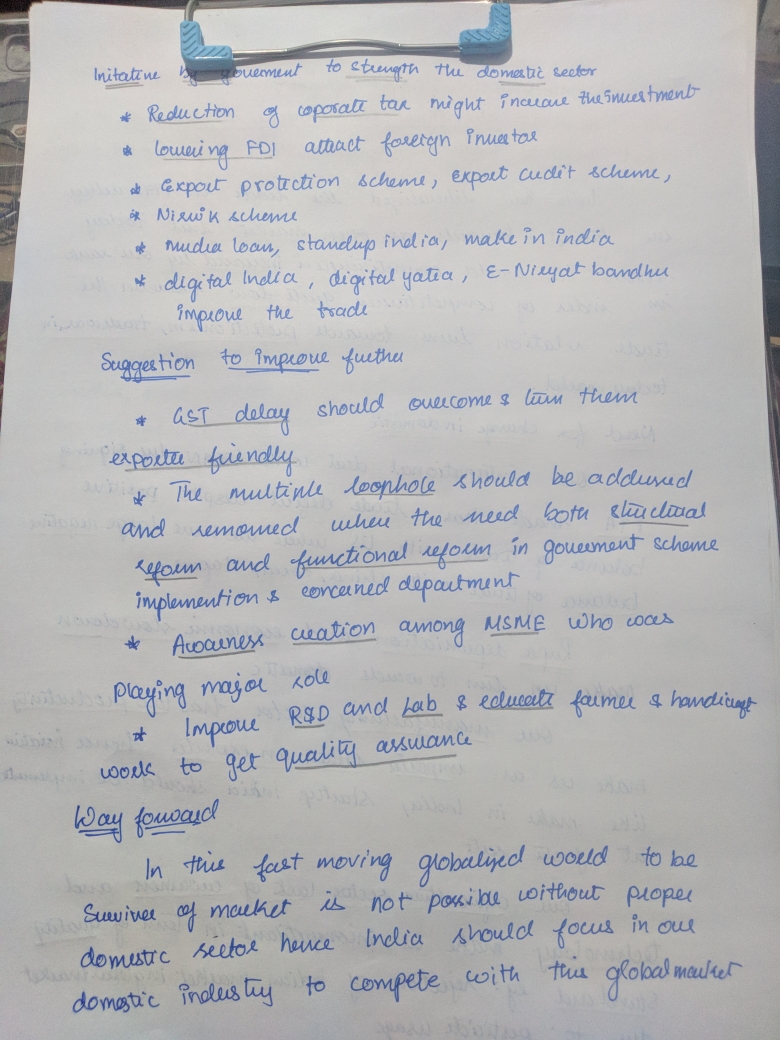 Initative by goverment to strength the domestic sector
* Reduction of coporate tax might increase the investment
* lowering FDI attract foreign investor
* Export protection scheme, export credit scheme,
* Nirvik scheme
* mudra loan, standup india, make in india
* digital India, digital yatra, E-Niryat bandhu
improve the trade
Suggestion to improve further
* GST delay should overcome & turn them
exporter friendly
* The multiple loophole should be addressed
and removed when the need both structural
reform and functional reform in goverment scheme
implemention & concerned department
* Awareness creation among MSME who was
playing major role
* Improve R&D and Lab & educate farmer & handicraft
work to get quality assurance
Way forward
In this fast moving globalized world to be
Surviver of market is not possible without proper
domestic sector hence India should focus in our
domestic industry to compete with this global market